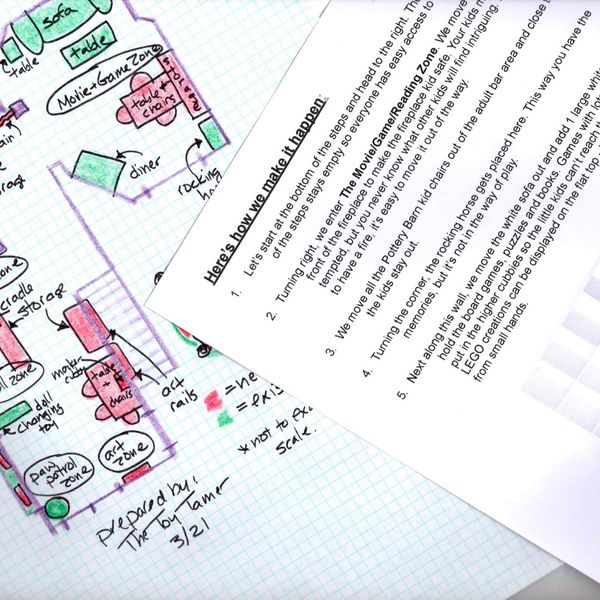 sofa
table
table
Movie+Game Zone
table +
chairs
diner
rocking
cradle
storage
zone
doll
changing
toy
table
+
chairs
art
rails
paw
patrol
zone
art
zone
* not to
scale.
prepared by:
The Toy Tamer
3/21
Here's how we make it happen:
1. Let's start at the bottom of the steps and head to the right.
of the steps stays empty so everyone has easy access to
2. Turning right, we enter The Movie/Game/Reading Zone. We move
front of the fireplace to make the fireplace kid safe. Your kids
tempted, but you never know what other kids will find intriguing.
to have a fire, it's easy to move it out of the way.
3. We move all the Pottery Barn kid chairs out of the adult bar area and close
the kids stay out.
4. Turning the corner, the rocking horse gets placed here. This way you have the
memories, but it's not in the way of play.
5. Next along this wall, we move the white sofa out and add 1 large
hold the board games, puzzles and books. Games with
put in the higher cubbies so the little kids can't reach
LEGO creations can be displayed on the flat top
from small hands.